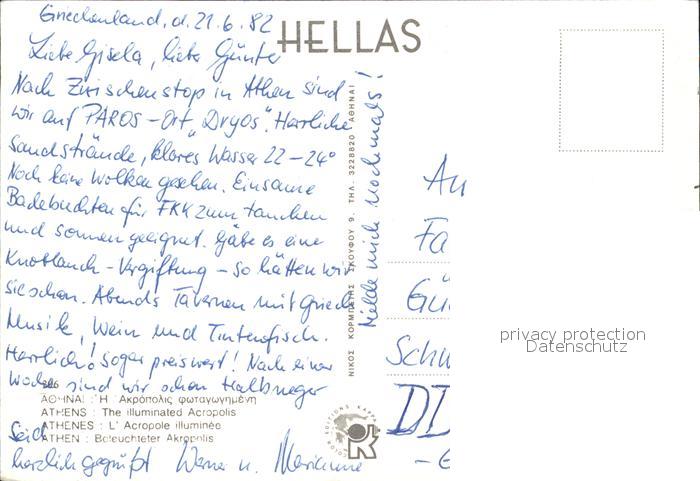 Griechenland, d. 21.6.82
HELLAS
Liebe Gisela, lieber Günter
Nach Zwischenstop in Athen sind
wir auf PAROS - Ort „Dryos". Herrliche
Sandstrände, klares Wasser 22 - 24°
Noch keine Wolken gesehen. Einsame
Badebuchten für FKK zum tauchen
und sonnen geeignet. Gäbe es eine
Knoblauch - Vergiftung - so hätten wir
sie schon. Abends Tavernen mit Griech.
Musik, Wein und Tintenfisch.
Herrlich! Sogar preiswert! Nach einer
Woche sind wir schon Halbneger
ΑΘΗΝΑΙ : Ἡ Ἀκρόπολις φωταγωγημένη
ATHENS : The illuminated Acropolis
ATHENES : L' Acropole illuminée
ATHEN : Beleuchteter Akropolis
Seid
herzlich gegrüßt Werner u. Marianne
Melde mich nochmals!
ΝΙΚΟΣ ΚΟΡΜΠΕΤΗΣ ΣΚΟΥΦΟΥ 9. ΤΗΛ. 3228820 ΑΘΗΝΑΙ
COLOR EDITIONS KAPPA
An
Fa
Gü
Schw
privacy protection
Datenschutz